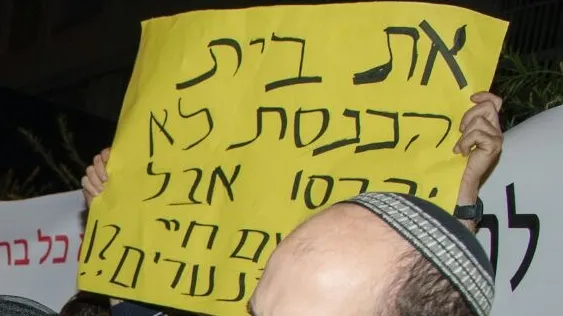 את בית
הכנסת לא
יהרסו אבל
חיי
נערים?!
כל